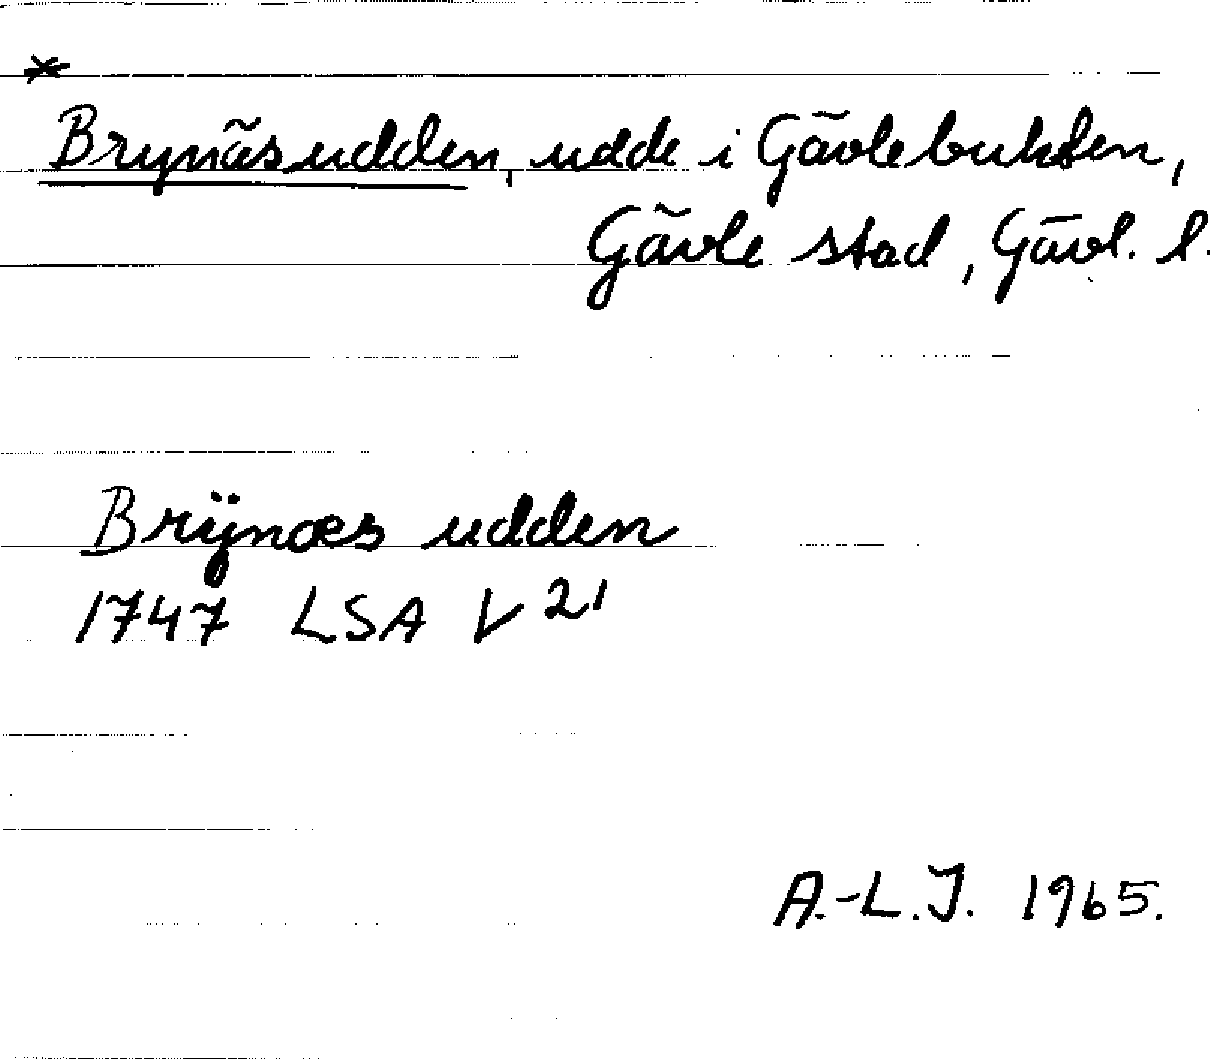 *
Brynäsudden, udde i Gävlebukten,
Gävle stad, Gävl. l.
Brÿnæs udden
1747 LSA V 21
A.-L.J. 1965.